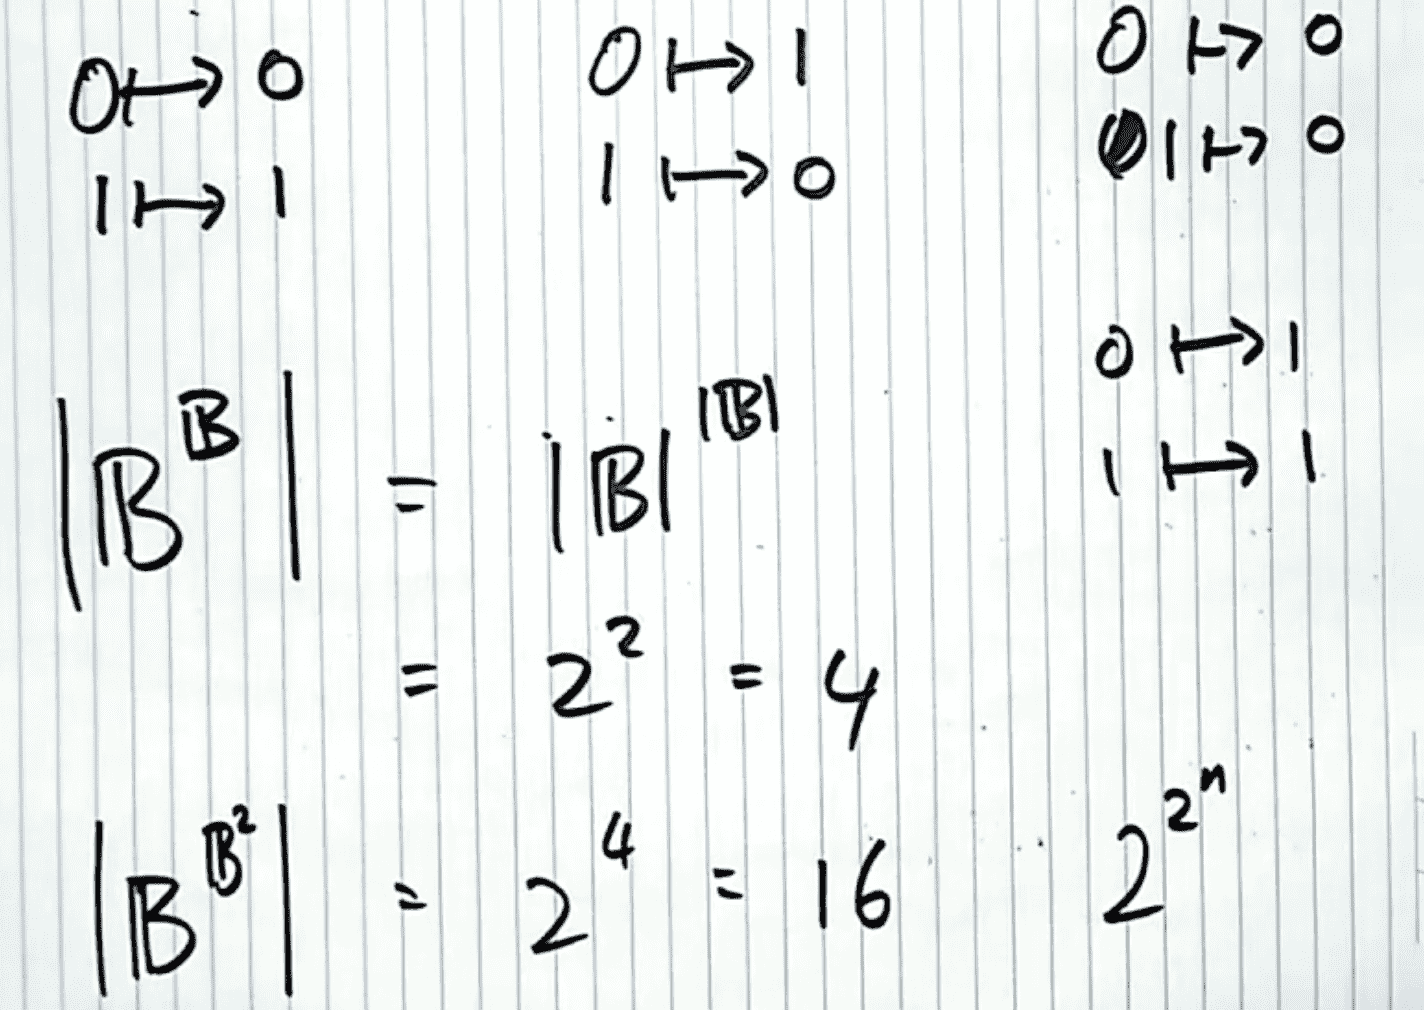 0 ↦ 0
1 ↦ 1
0 ↦ 1
1 ↦ 0
0 ↦ 0
1 ↦ 0
0 ↦ 1
1 ↦ 1
|𝔹^𝔹| = |𝔹|^|𝔹|
= 2^2 = 4
|𝔹^𝔹^2| = 2^4 = 16
2^2^n